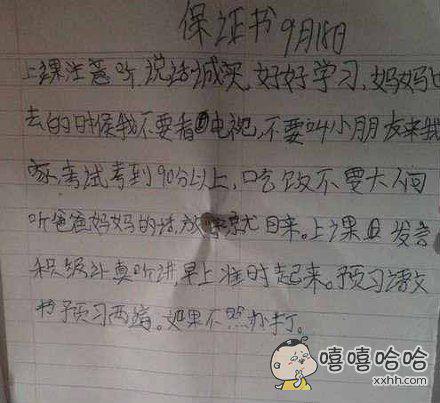 保证书9月18日
上课注意听,说话诚实,好好学习,妈妈出
去的时候我不要看电视,不要叫小朋友来我
家,考试考到90分以上,吃饭不要大人问
听爸爸妈妈的话,放学就回来。上课 发言
积级 真听讲,早上准时起来。预习语文
书预习两编。如果不照办打。
嘻嘻哈哈
xxhh.com